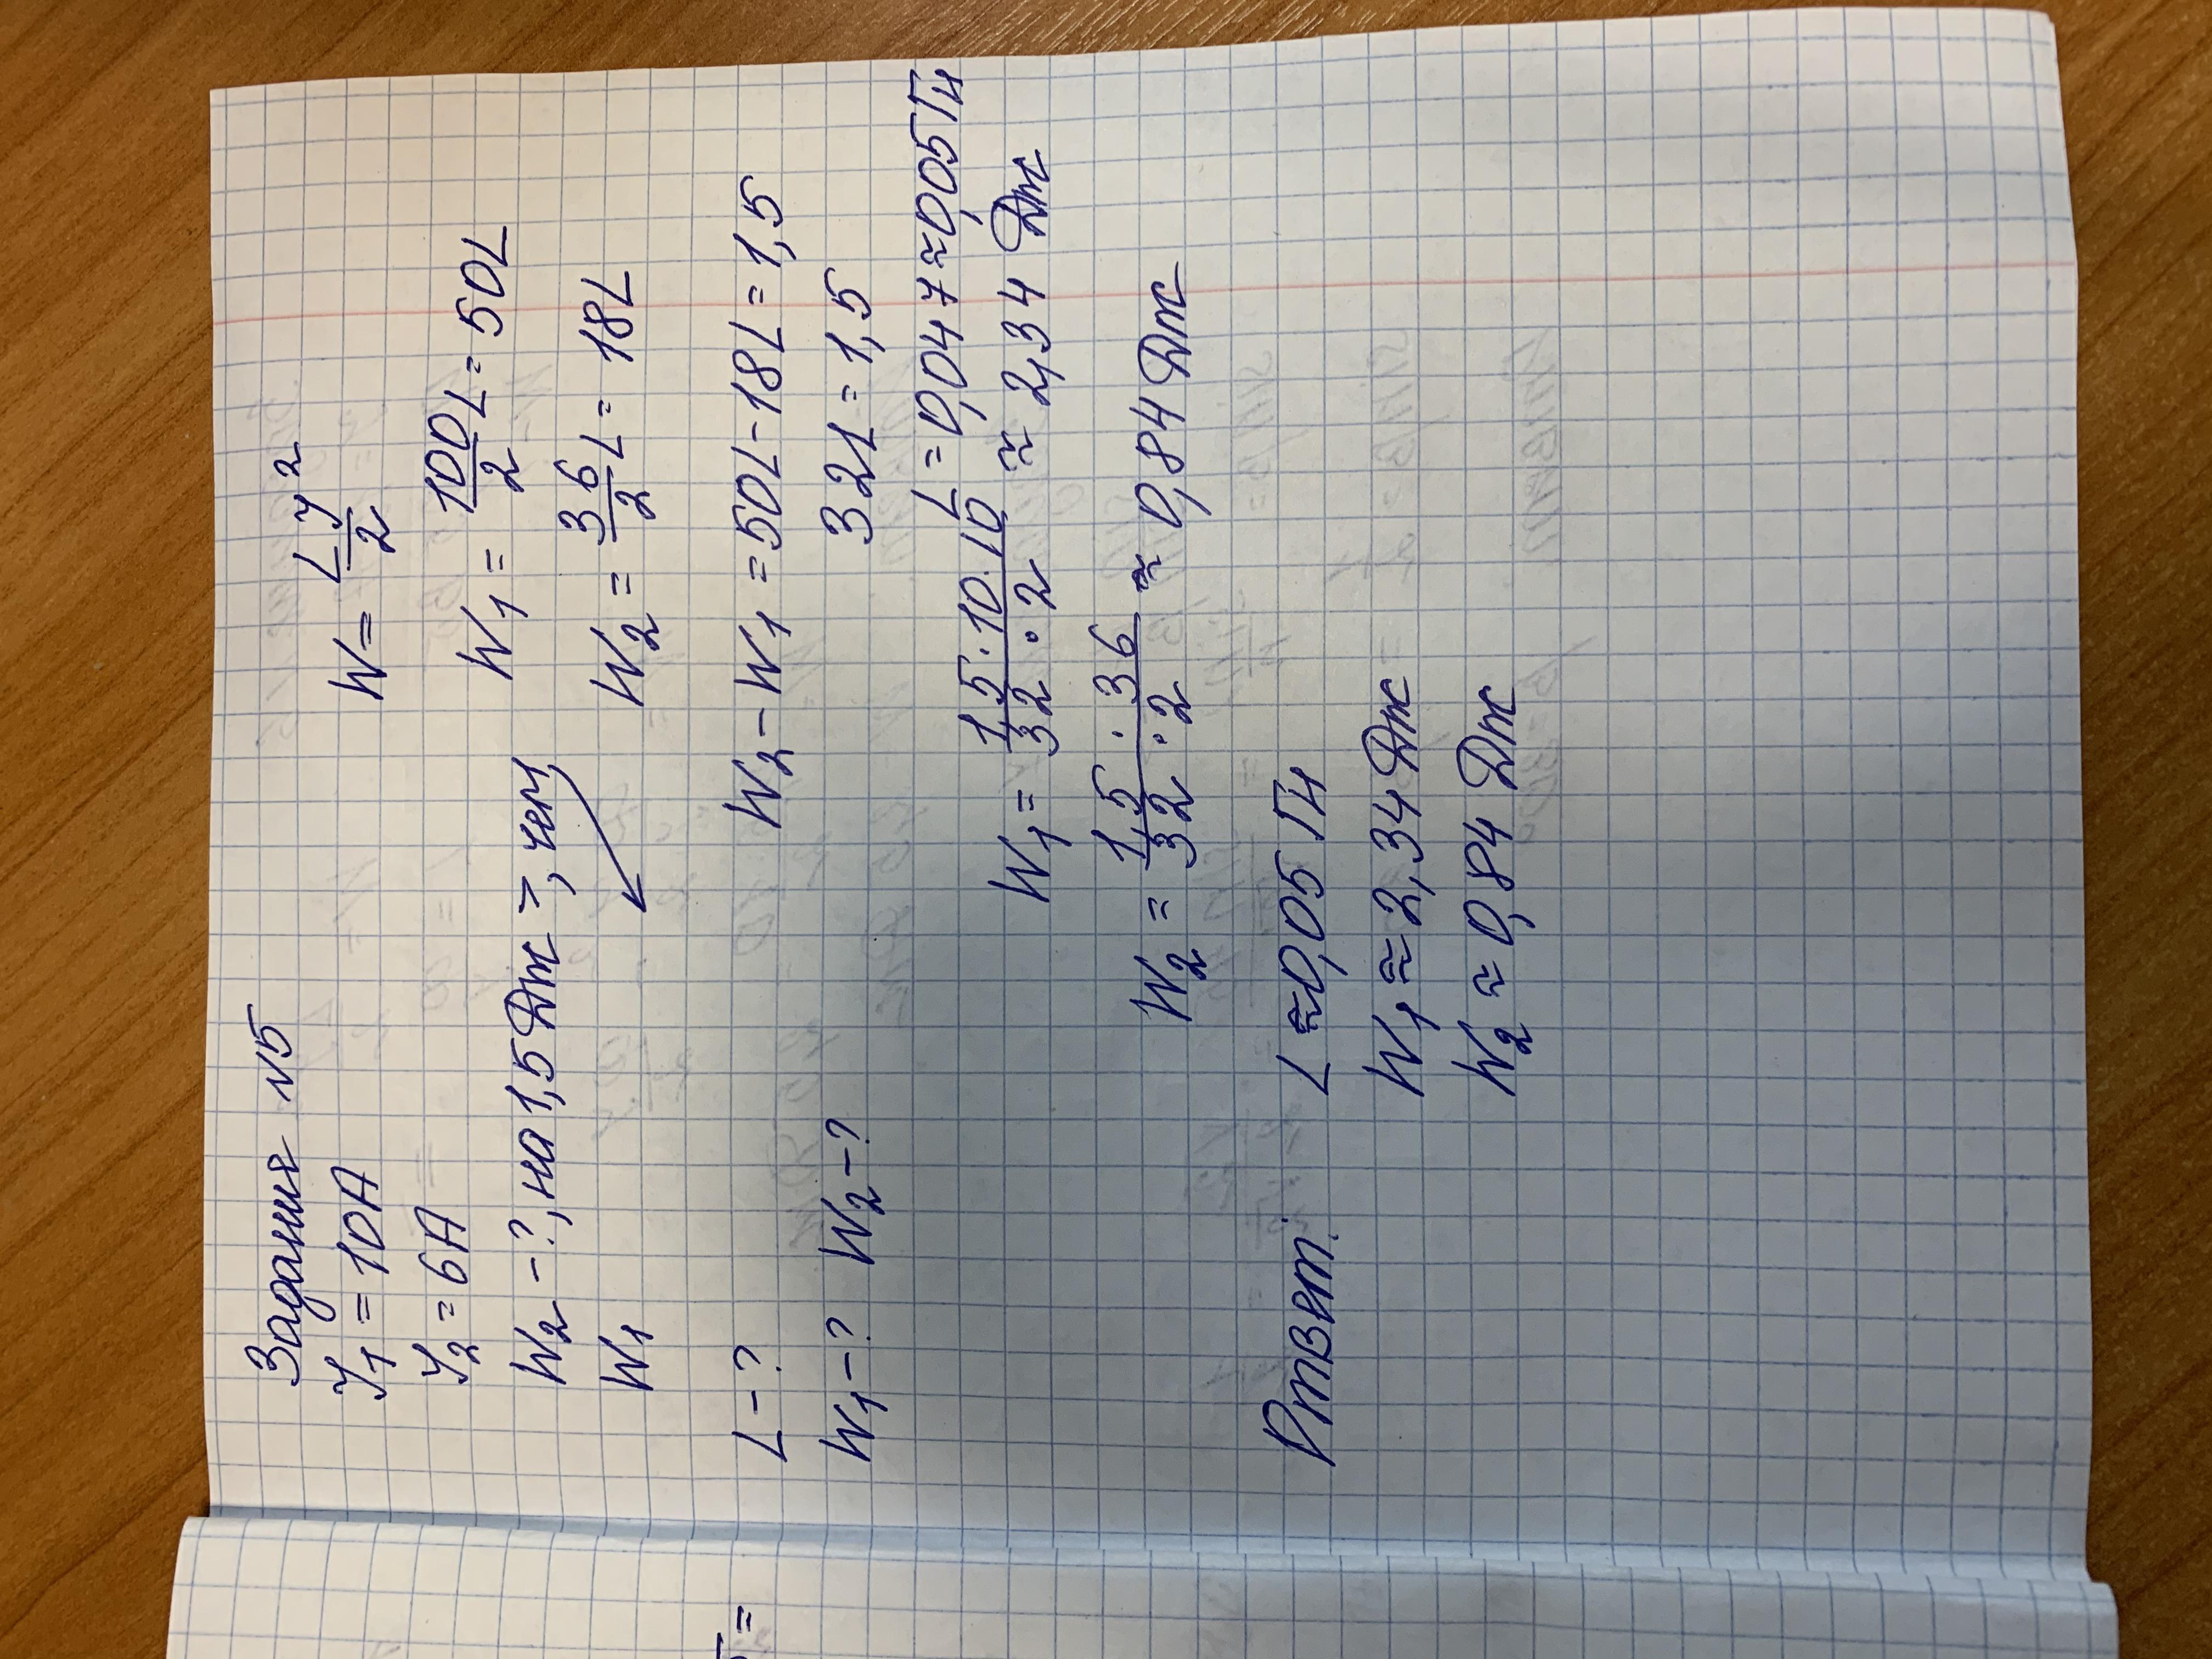 Задание №5
У₁ = 10А
У₂ = 6А
W₂ - ?, на 1,5 Дж >, чем
W₁
L - ?
W₁ - ? W₂ - ?
W = L У²/2
W₁ = 100/2 L = 50L
W₂ = 36/2 L = 18L
W₂ - W₁ = 50L - 18L = 1,5
32L = 1,5
L = 0,047 ≈ 0,05 Гн
W₁ = 1,5 · 10 · 10 / 32 · 2 ≈ 2,34 Дж
W₂ = 1,5 · 36 / 32 · 2 ≈ 0,84 Дж
Ответ: L ≈ 0,05 Гн
W₁ ≈ 2,34 Дж
W₂ ≈ 0,84 Дж